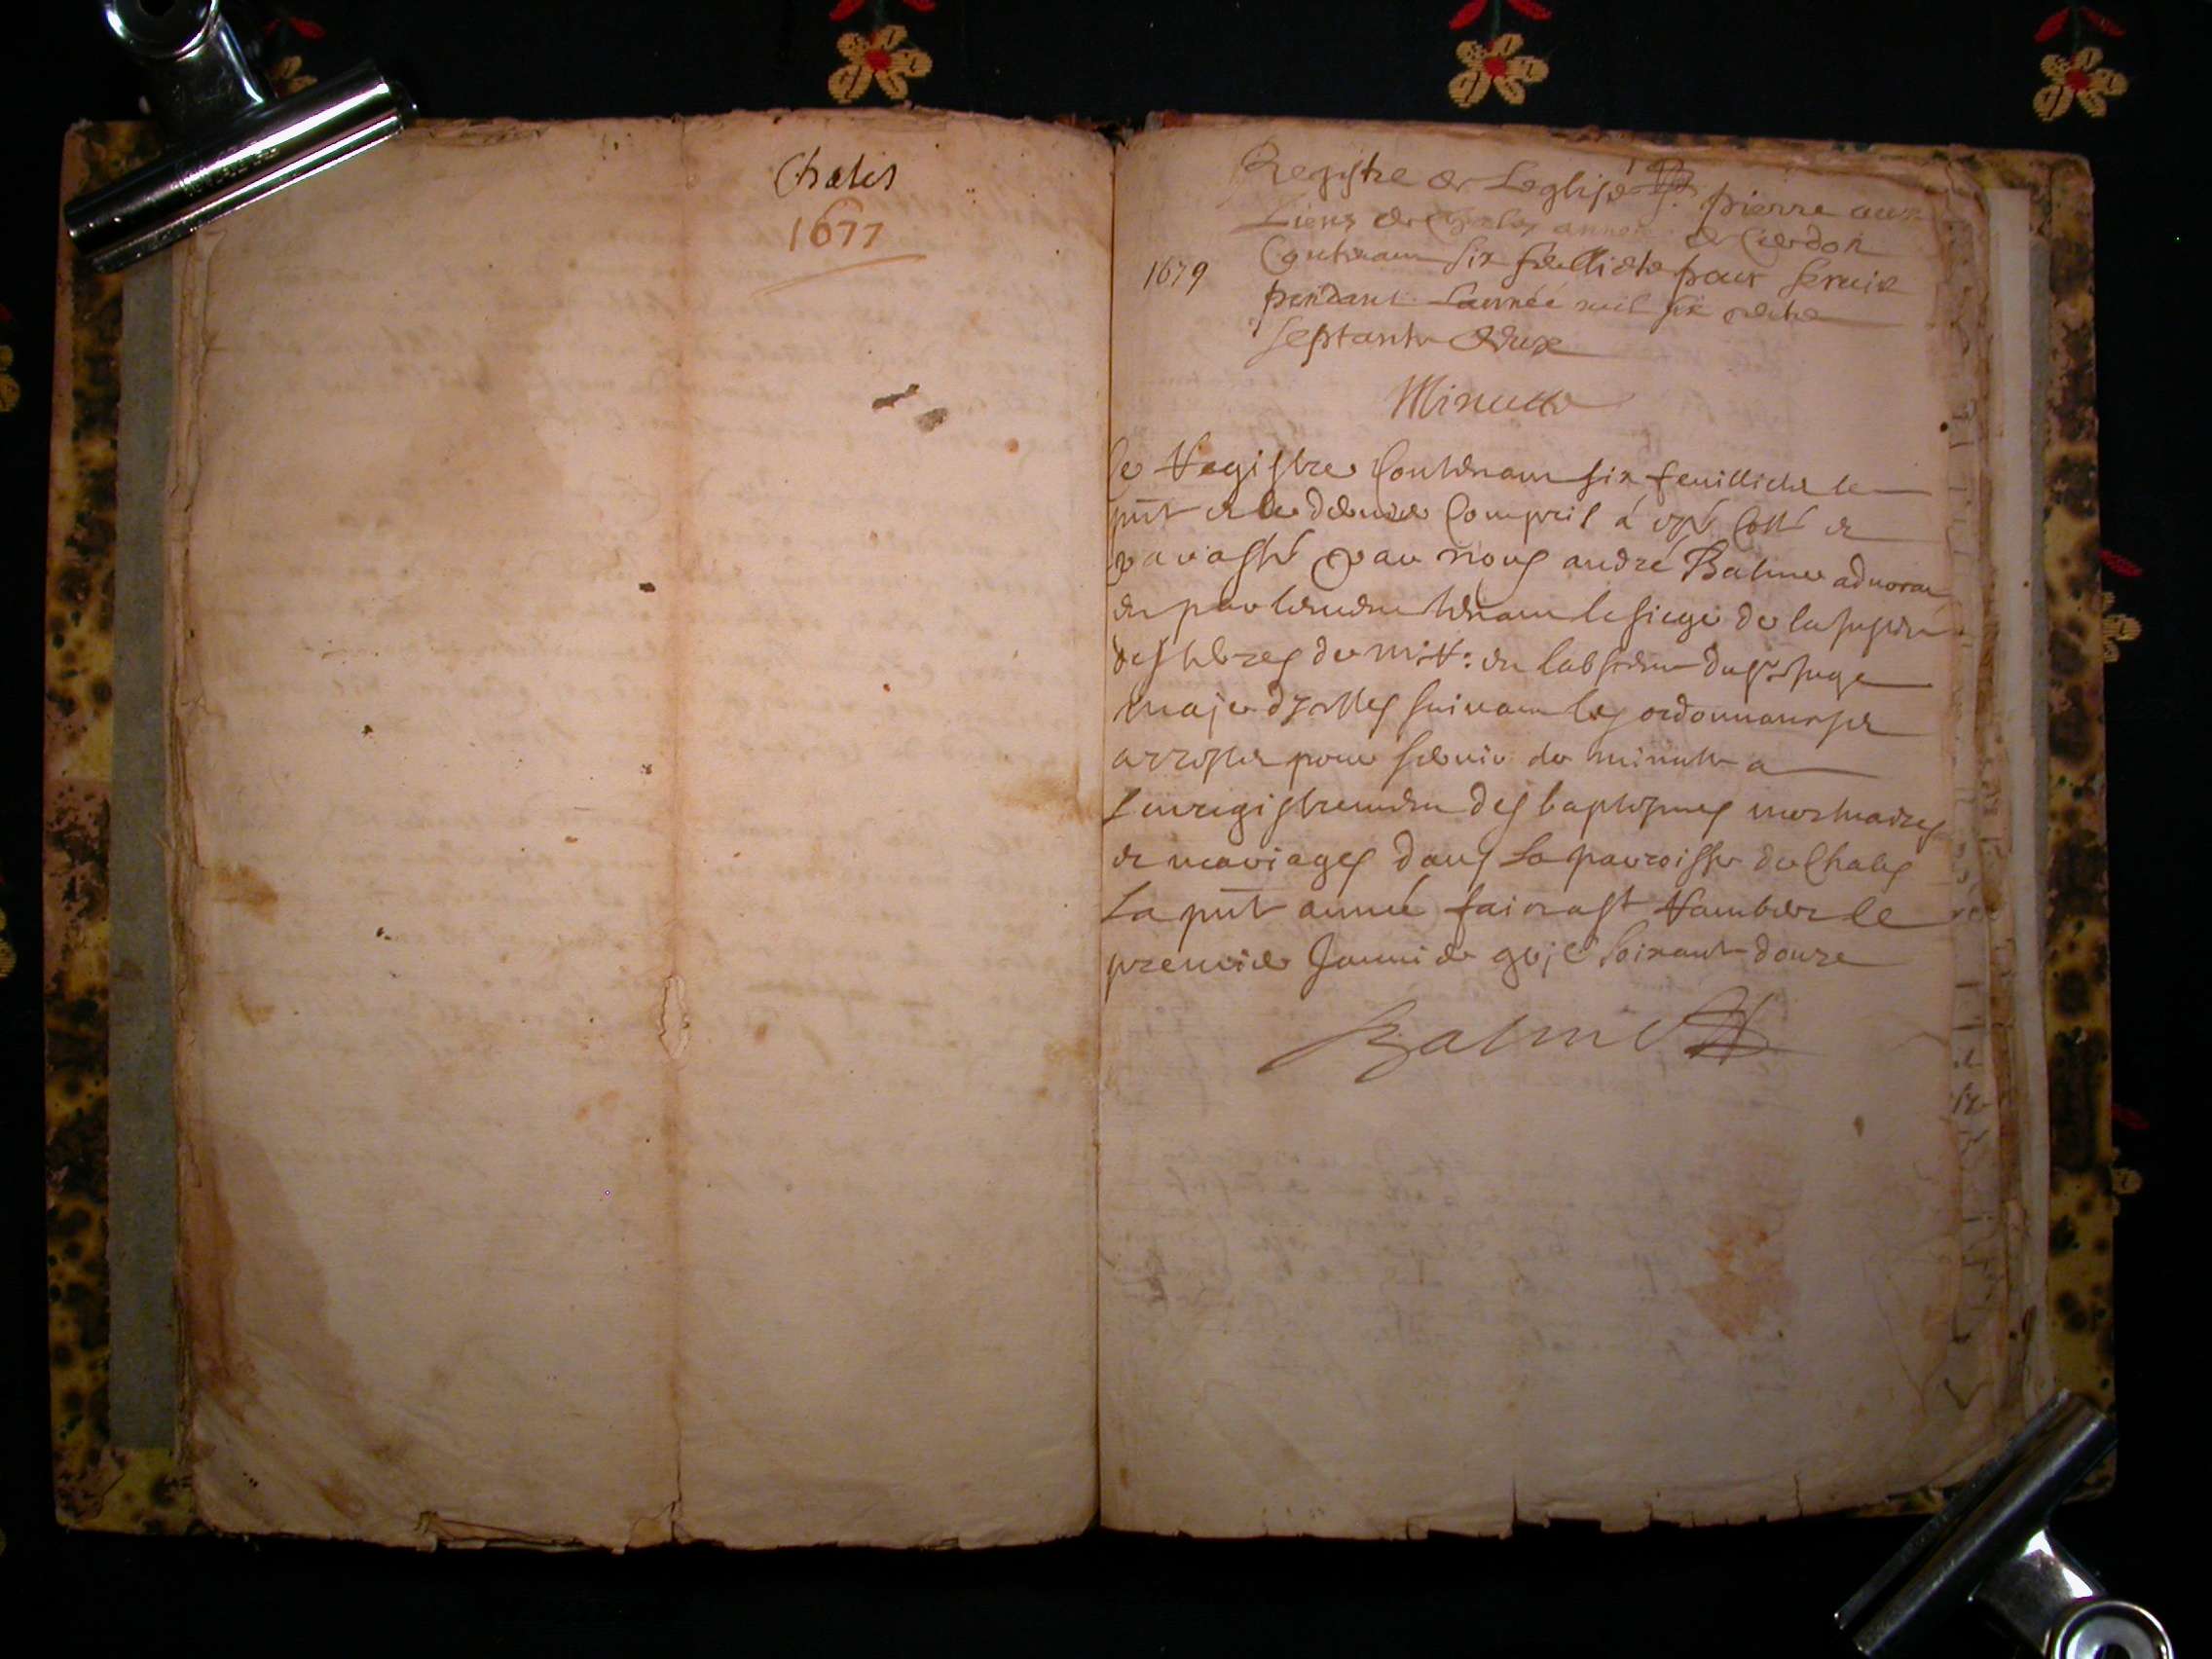 Chales
1677
Registre de Leglise St. pierre aux
Liens de Chales annexe de Cerdon
1679
Contenant six feullietz pour servir
pendant Lannée mil six cents
septante deux
Minutte
Ce Registre Contenant six feuillietz le
pnt et le dernier Compris à esté Cotté et
paraffé par nous andré Balme advocat
en parlement tenant le siege de la
terres de en labsence du Sr Juge
maje suivant les ordonnances et
arrestz pour servir de minutte a
Lenregistrement des baptesmes mortuaires
et mariages dans La parroisse de Chales
La pnt année faict a st Rambert le
premier Janvier gvjc soixante douze
Balme